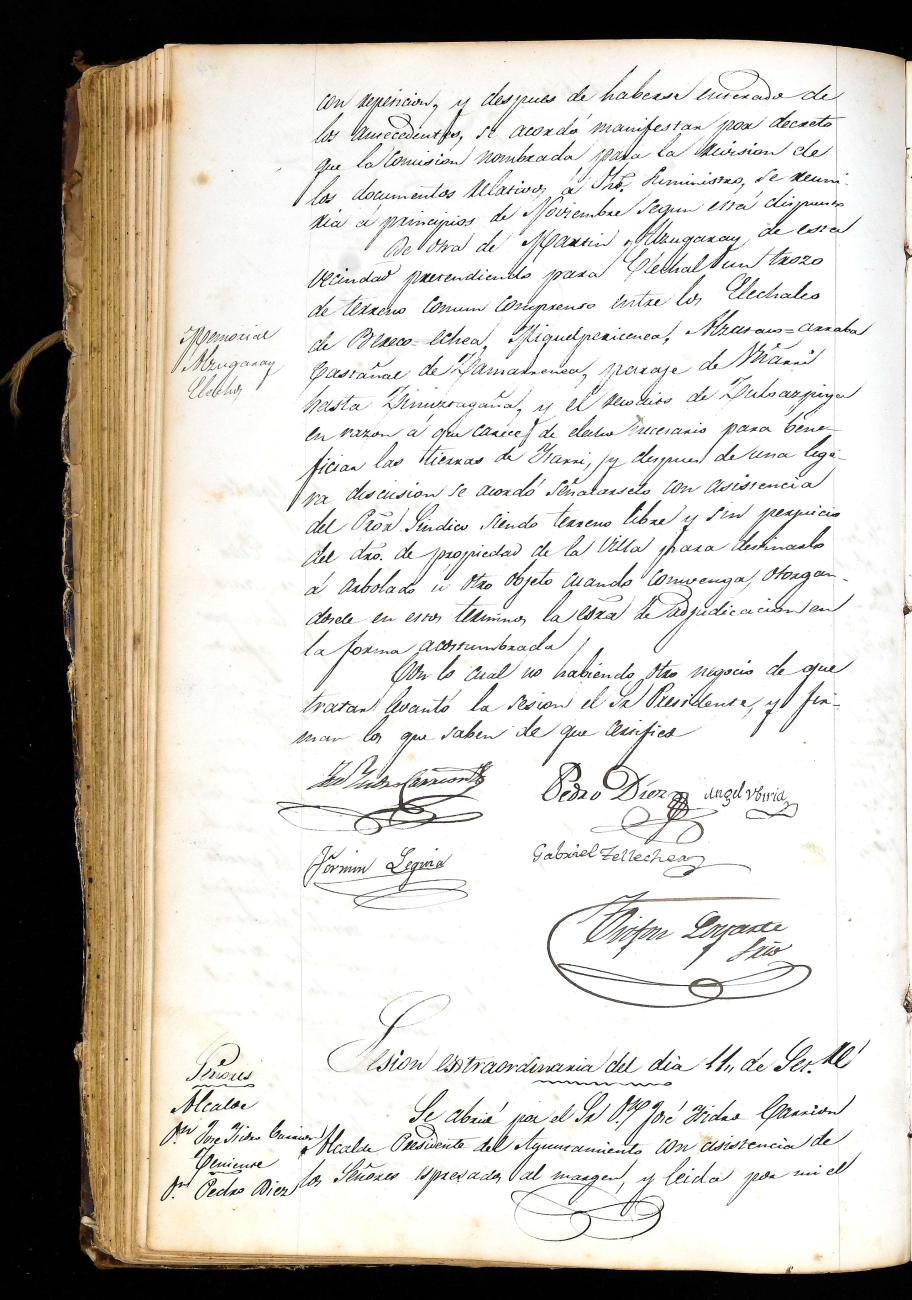 con repeticion, y despues de haberse enterado de
los antecedentes, se acordó manifestar por decreto
que la Comision nombrada para la revision de
los documentos relativos á Suministro, se reuni-
ria á principios de Noviembre segun está dispuesto
De otra de Martin Alzugaray de esta
vecindad pretendiendo para Elechal un trozo
de terreno comun comprenso entre los Elechales
Memorial
Alzugaray
Elechos
de Bereco-echea, Miguelpericenea,
Castañal de Zamarrenea, paraje de
hasta y el de
en razon á que carece de elecho necesario para bene-
ficiar las tierras de y despues de una lige-
ra discusion se acordó señalarselo con asistencia
del Pror Sindico siendo terreno libre y sin perjuicio
del dro. de propiedad de la Villa para destinarlo
á arbolado ú otro objeto cuando convenga, otorgan-
dosele en estos terminos la esra de adjudicacion en
la forma acostumbrada
Con lo cual no habiendo otro negocio de que
tratar levantó la sesion el Sr Presidente, y fir-
man los que saben de que certifico
José Ysidro Carrion
Pedro Diez
Angel Ubiria
Fermin Leguia
Gabriel Tellechea
Srio
Sesion extraordinaria del dia 11,, de
Señores
Alcalde
Dn José Ysidro Carrion
Teniente
Dn Pedro Diez
Se abrió por el Sr Dn José Ysidro Carrion
Alcalde Presidente del Ayuntamiento con asistencia de
los Señores espresados al margen, y leida por mi el